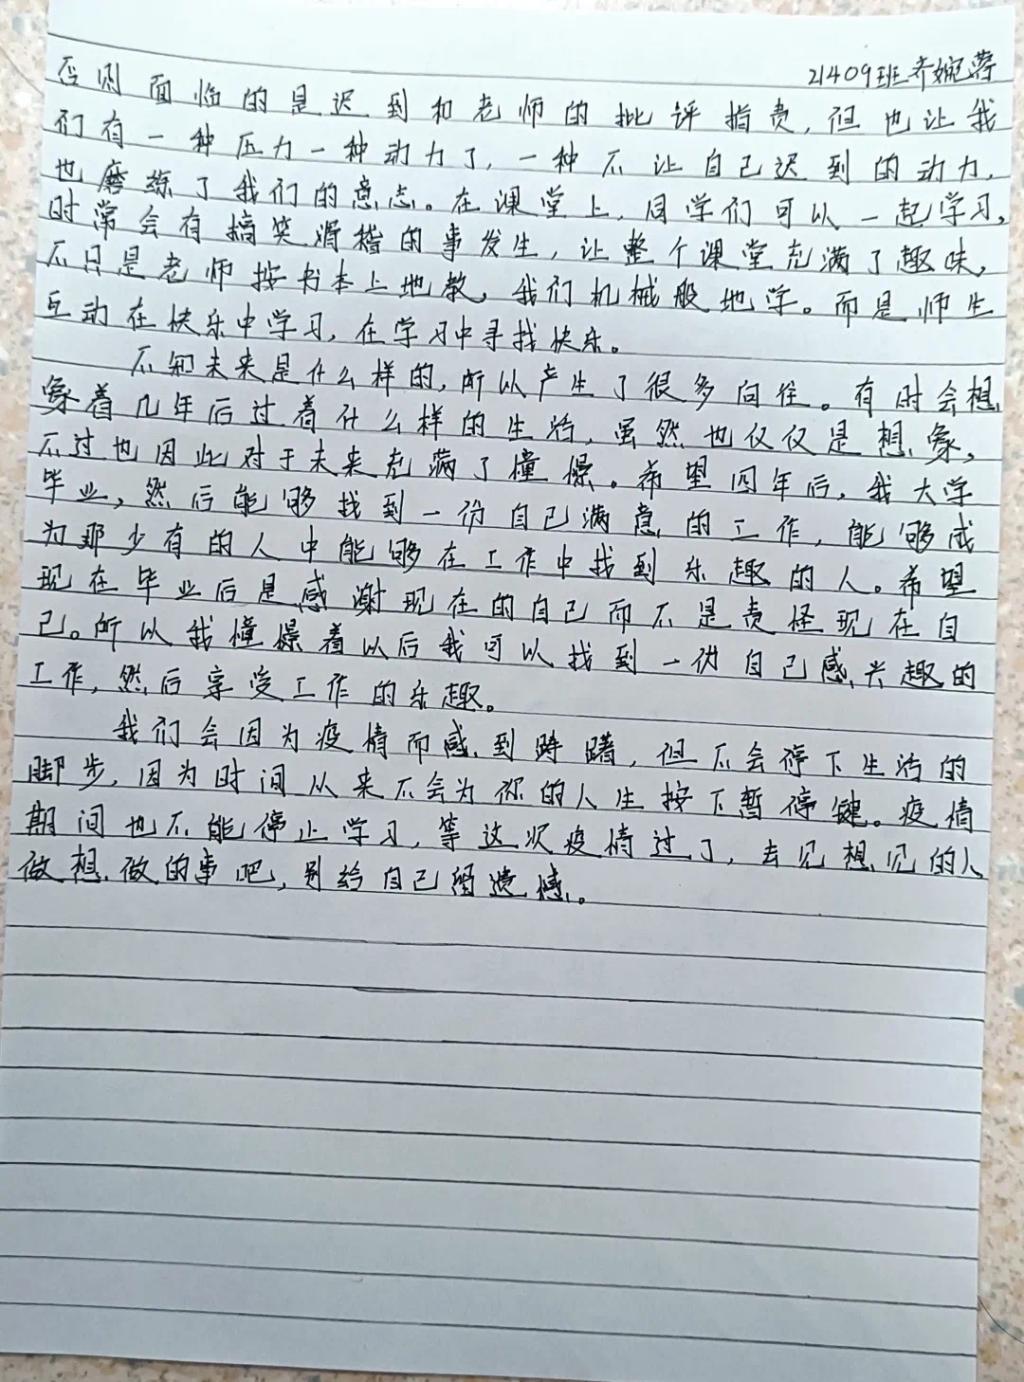 21409班齐婉蓉
否则面临的是迟到和老师的批评指责,但也让我
们有一种压力一种动力了,一种不让自己迟到的动力,
也磨练了我们的意志。在课堂上,同学们可以一起学习,
时常会有搞笑滑稽的事发生,让整个课堂充满了趣味,
不只是老师按书本上地教,我们机械般地学。而是师生
互动在快乐中学习,在学习中寻找快乐。
不知未来是什么样的,所以产生了很多向往。有时会想
象着几年后过着什么样的生活,虽然也仅仅是想象,
不过也因此对于未来充满了憧憬。希望四年后,我大学
毕业,然后能够找到一份自己满意的工作,能够成
为那少有的人中能够在工作中找到乐趣的人。希望
现在毕业后是感谢现在的自己而不是责怪现在自
己。所以我憧憬着以后我可以找到一份自己感兴趣的
工作,然后享受工作的乐趣。
我们会因为疫情而感到踌躇,但不会停下生活的
脚步,因为时间从来不会为你的人生按下暂停键。疫情
期间也不能停止学习,等这次疫情过了,去见想见的人
做想做的事吧,别给自己留遗憾。